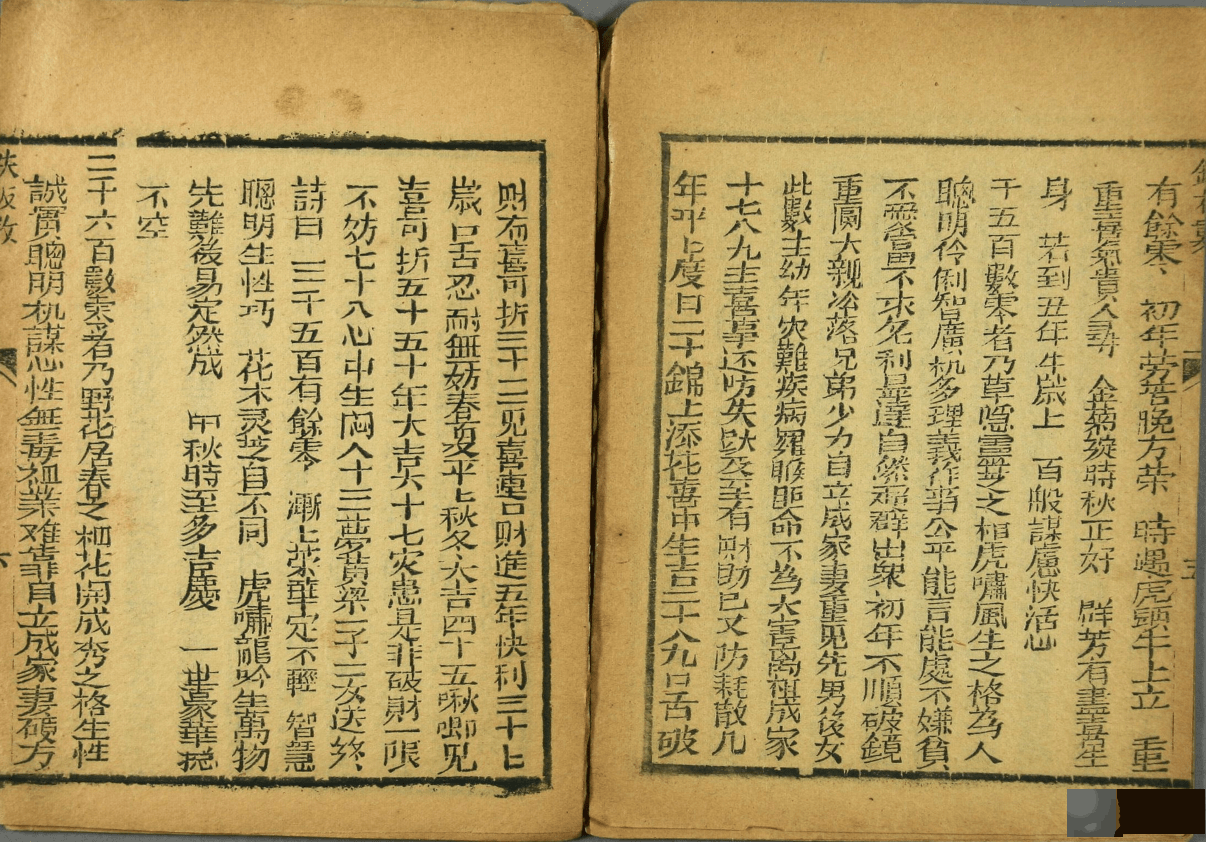 有餘零 初年劳苦晚方荣 時遇虎頭牛上立 重
重喜氣貴人尋 金菊綻時秋正好 群芳有盡喜星
身 若到丑年牛歲上 百般謀慮快活心
千五百數零者乃草隐靈芝之相虎嘯風生之格為人
聰明伶俐智廣机多理義作事公平能言能處不嫌貧
不愛富不求名利显達自然超群出衆初年不順破鏡
重圓大親冷落兄弟少力自立成家妻重见先男後女
此數主幼年灾難疾病羅睺距命不為大害离祖成家
十七八九主喜事还防失欤及至有财助已又防耗散几
年平上度日二十錦上添花喜中生吉三十八九口舌破
财有喜可折三十三见喜連口財進五年快利三十七
歲口舌忍耐無妨春夏平上秋冬大吉四十五啾唧见
喜可折五十五五十年大吉六十七灾患是非破財一限
不妨七十八心中生悶八十三夢黄粱一子二女送終
詩曰 三千五百有餘零 漸上荣華定不輕 智慧
聰明生性巧 花木灵芝自不同 虎嘯龍吟生萬物
先難後易定然成 中秋時至多吉慶 一世豪華總
不空
三千六百數零者乃野花居春之栖花開成秀之格生性
誠實聰明机謀心性無毒祖業难靠自立成家妻硬方
鉄板数
六